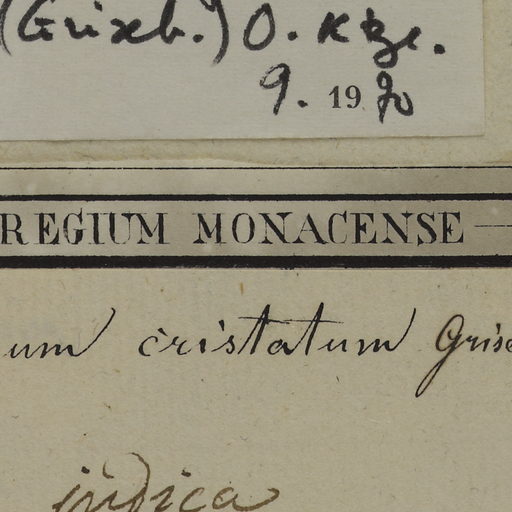 (Griseb.) O. Ktze.
9. 1970
REGIUM MONACENSE
um cristatum Grise
indica